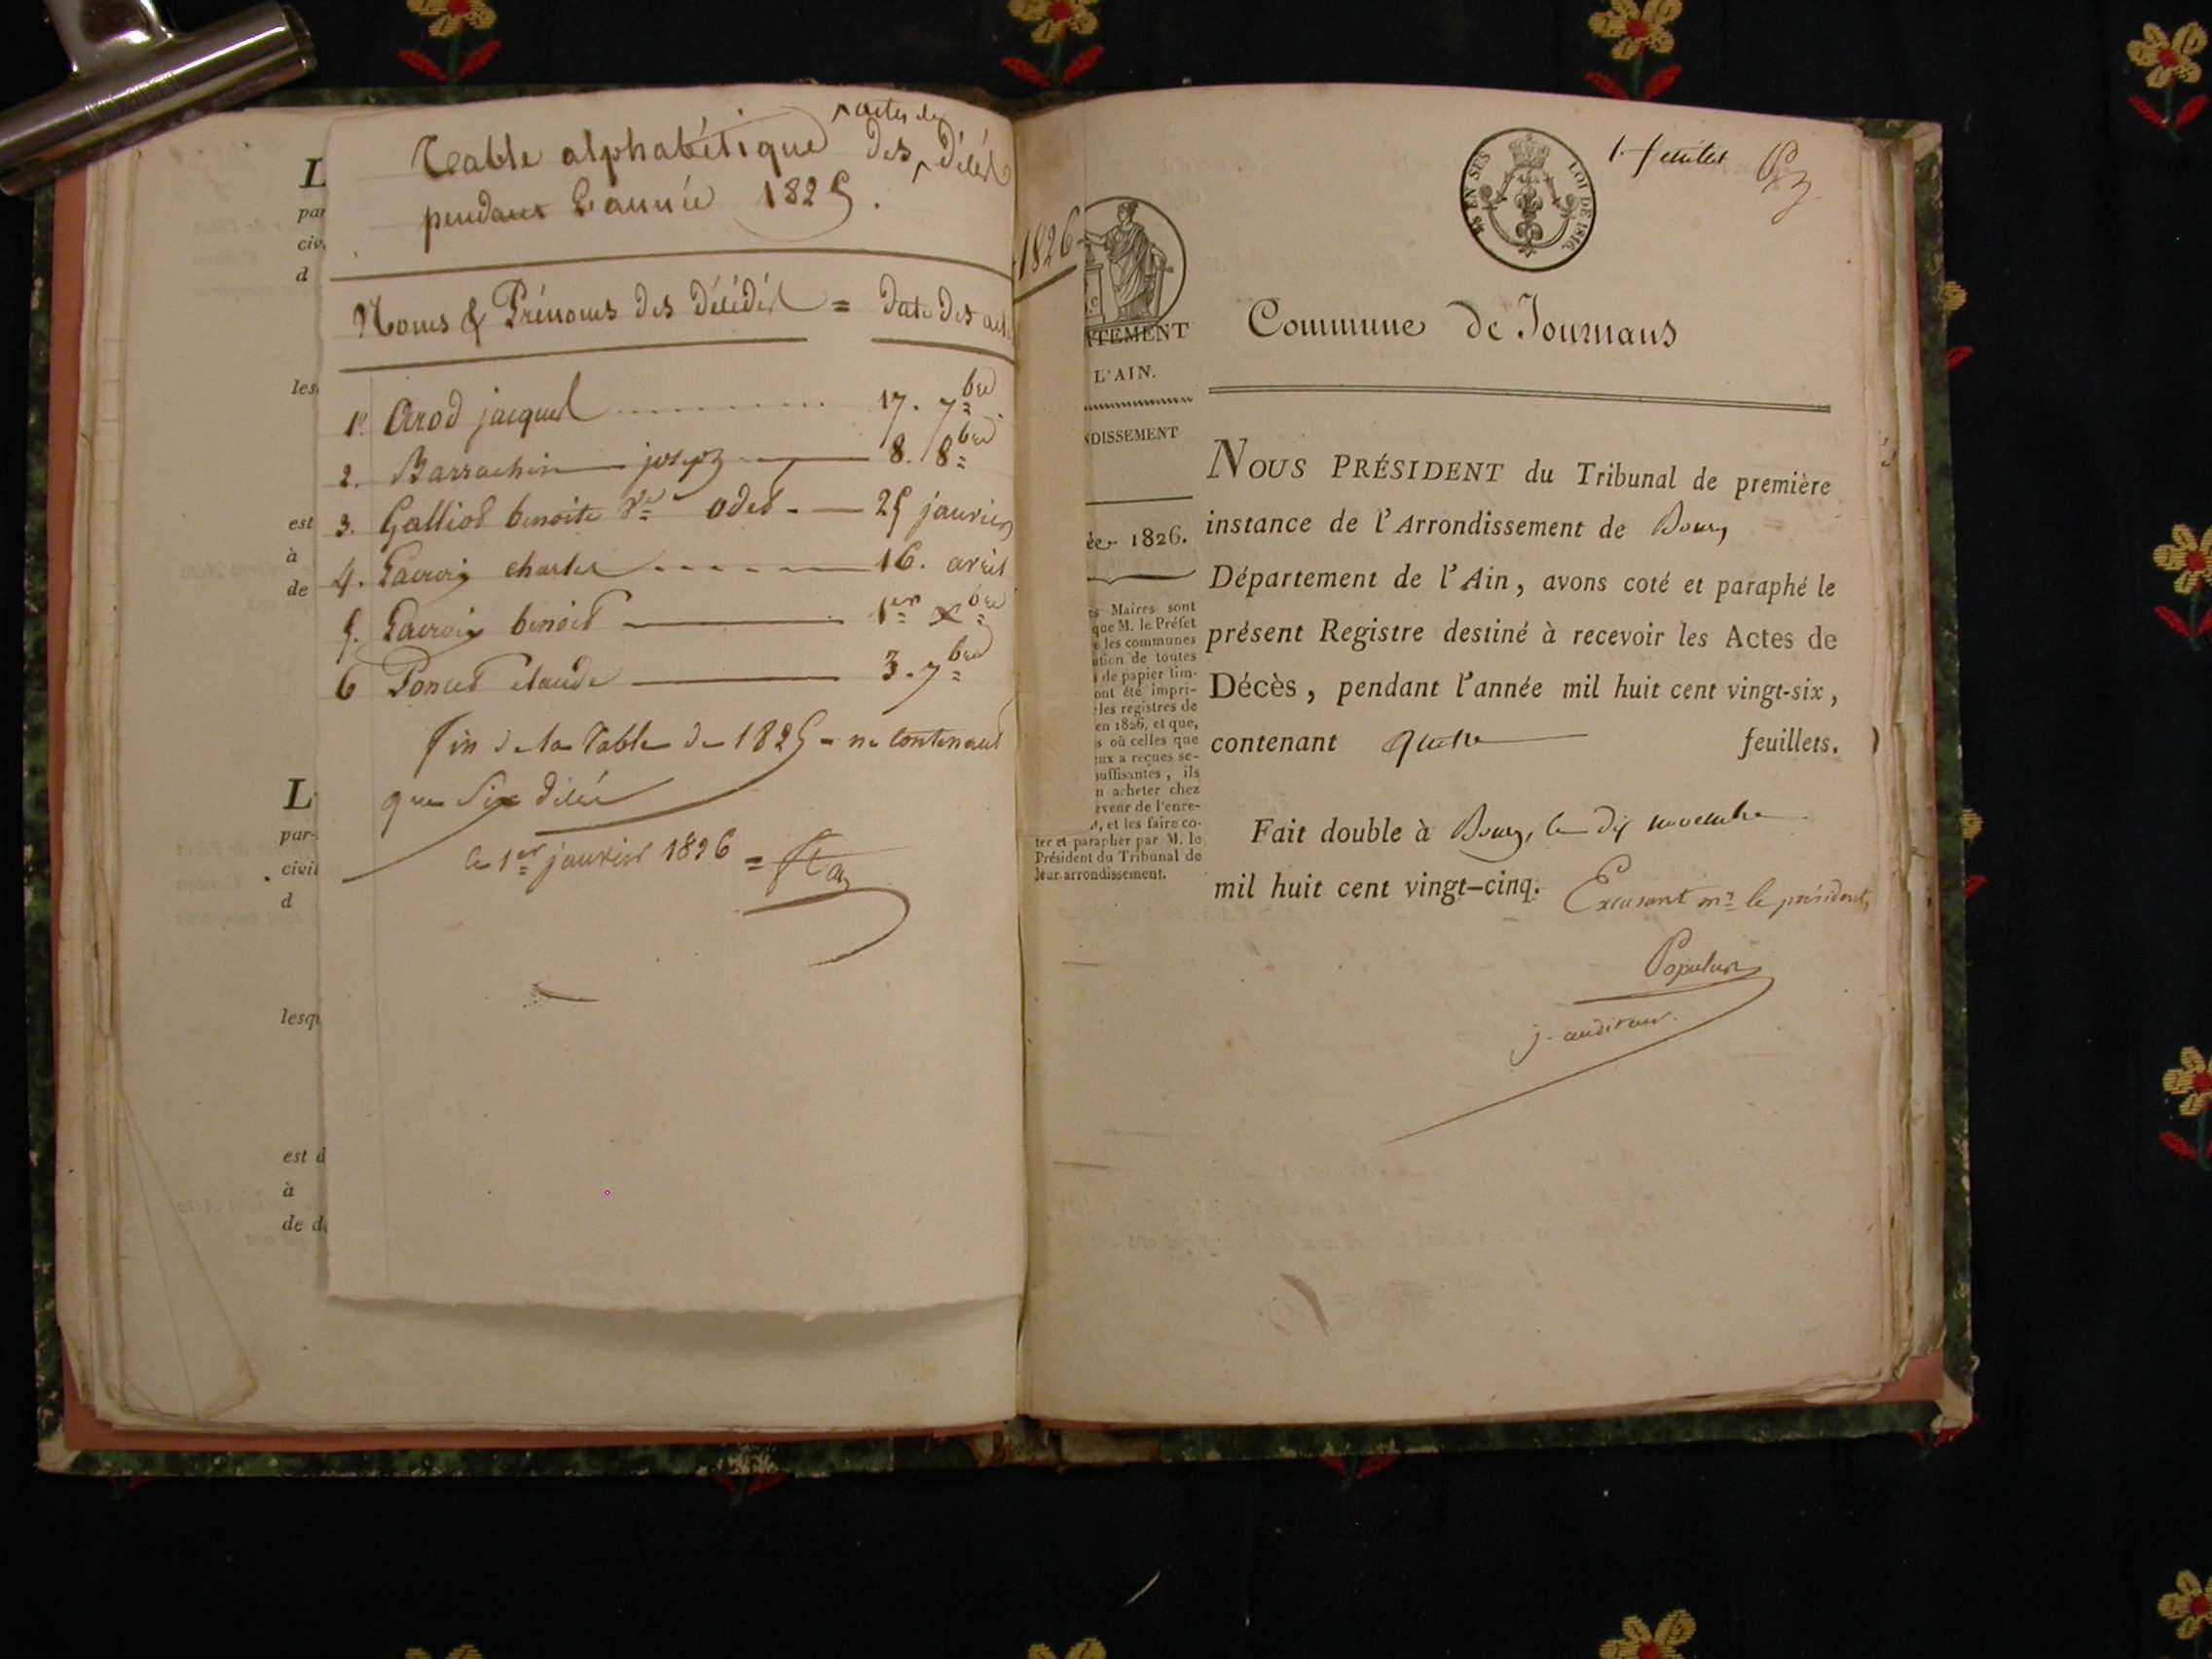 L
par
civ.
d
les
est
à
de
L
par-
civil
d
lesqu
est d
à
de d
Table alphabétique des ^ actes de décès
pendant l'année 1825.
Noms & Prénoms des décédés = date des act
1º. Arod jacques 17. 7bre
2. Barrachin joseph 8. 8bre
3. Galliod benoite Ve odet 25 janvier
4. Lacroix charles 16. avril
5. Lacroix benoit 1er xbre
6 Poncet claude 3. 7bre
fin de la Table de 1825 = ne contenant
que Six décés
le 1er janvier 1826 =
1826
RTEMENT
L'AIN.
NDISSEMENT
ée 1826.
es Maires sont
que M. le Préfet
les communes
ution de toutes
de papier tim-
ont été impri-
les registres de
en 1826, et que,
s où celles que
eux a reçues se-
suffisantes, ils
n acheter chez
eveur de l'enre-
t, et les faire co-
ter et parapher par M. le
Président du Tribunal de
leur arrondissement.
EN SUS LOI DE 1816.
1. feuillet
Commune de Journans
NOUS PRÉSIDENT du Tribunal de première
instance de l'Arrondissement de Bourg
Département de l'Ain, avons coté et paraphé le
présent Registre destiné à recevoir les Actes de
Décès, pendant l'année mil huit cent vingt-six,
contenant quatre feuillets.
Fait double à Bourg, le dix novembre
mil huit cent vingt-cinq. Excusant mr le président,
Populus
j. auditeur.